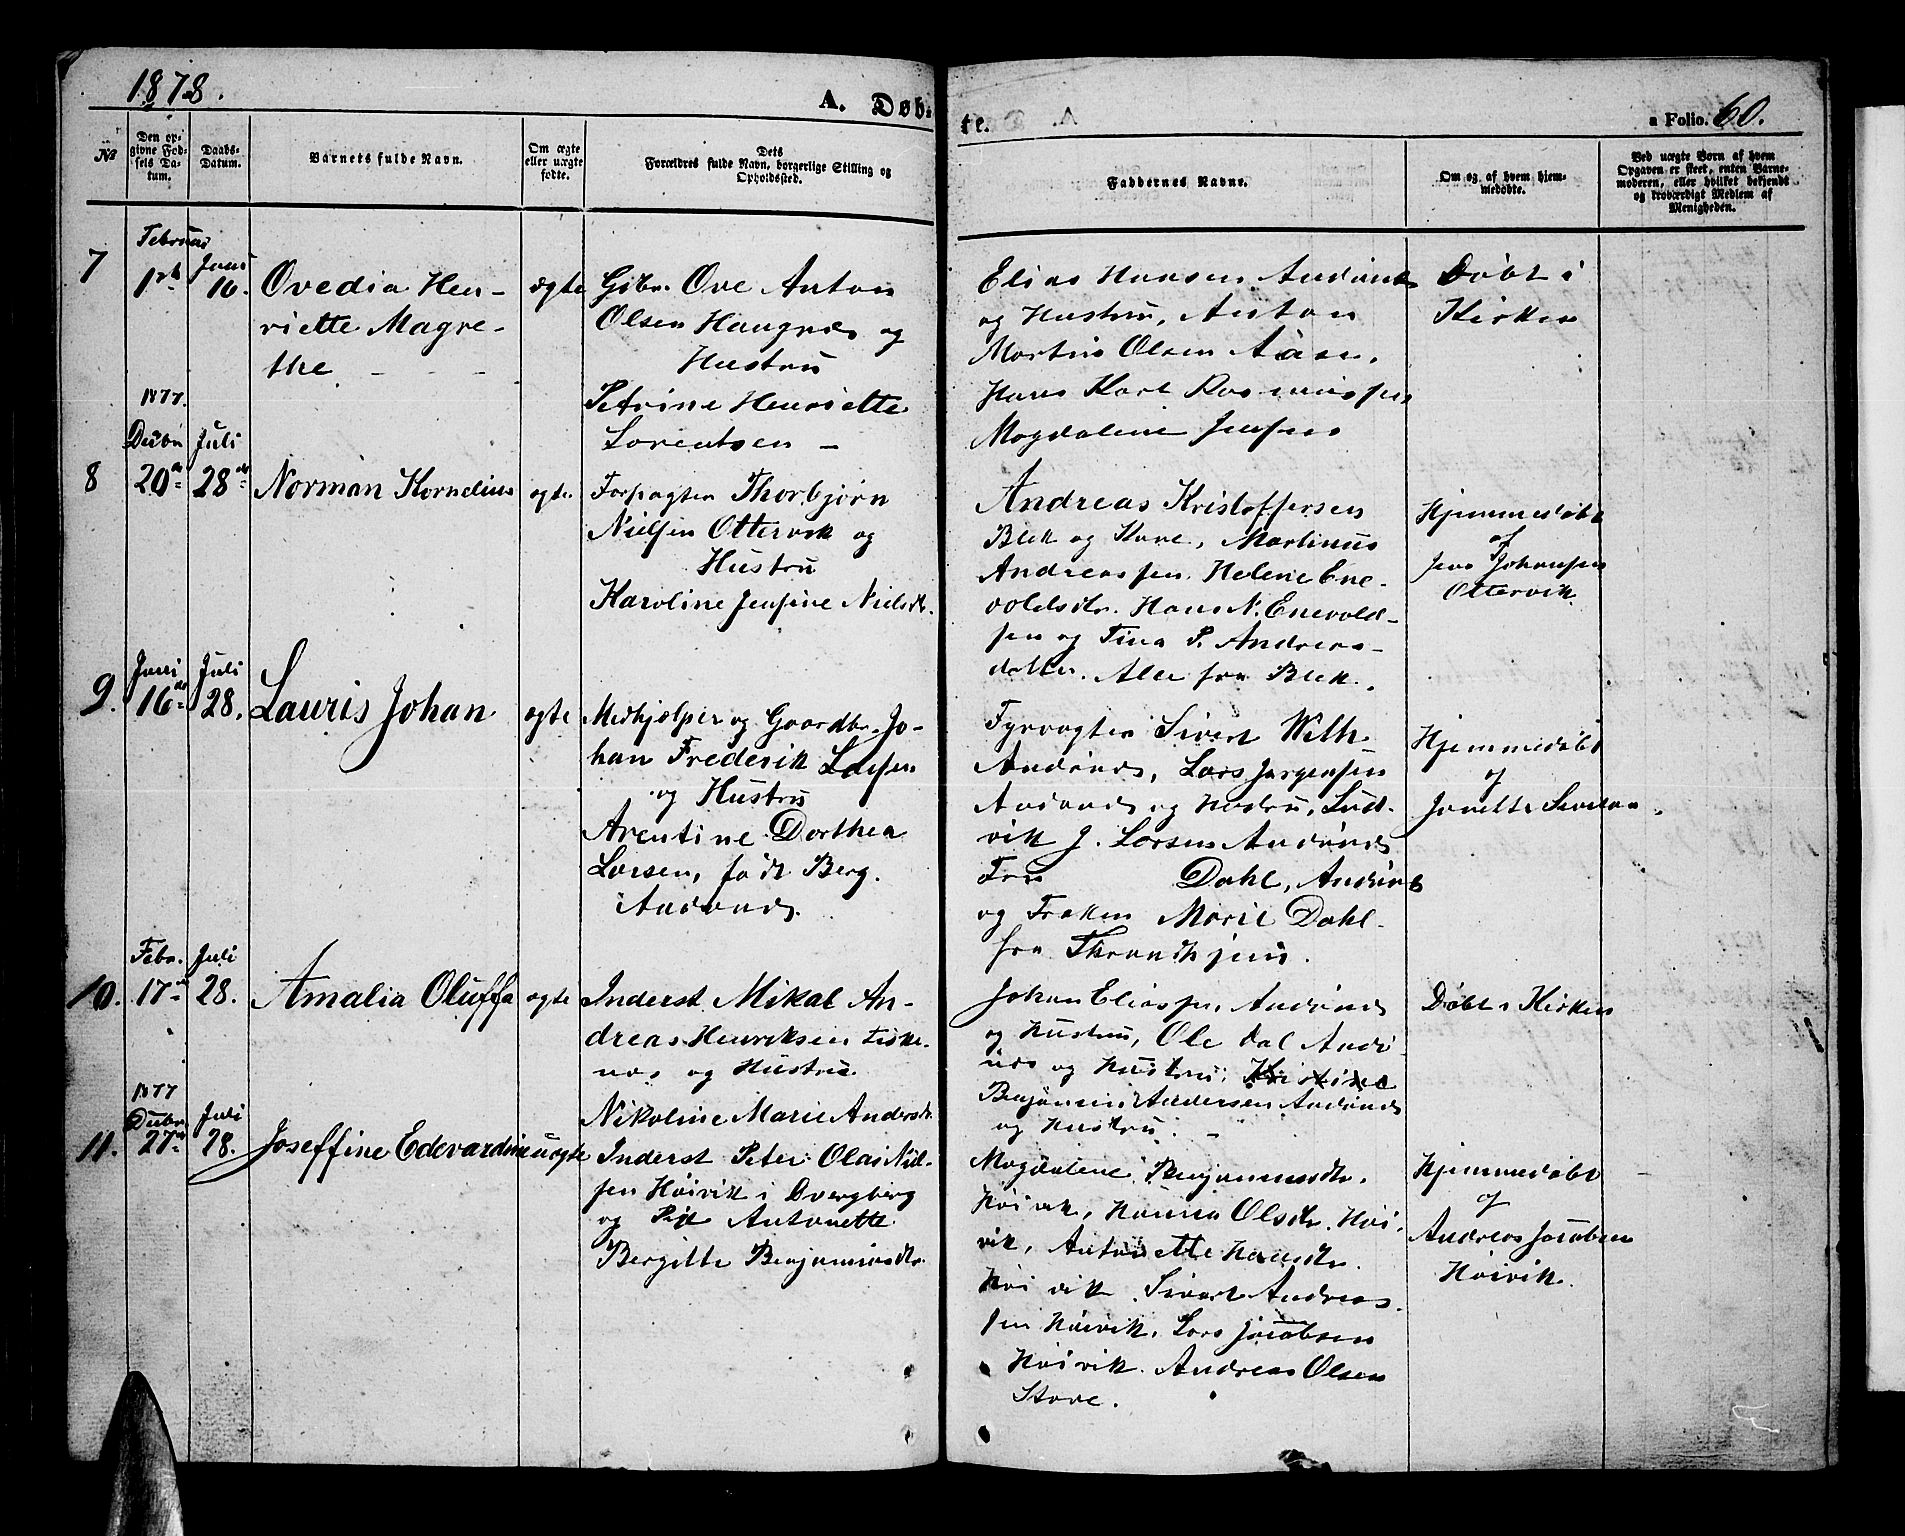 1878.
A. Døb-
te.
a Folio. 60.
№
Den op-
givne Fød-
sels Da-
tum.
Daabs-
Datum.
Barnets fulde Navn.
Om ægte
eller uægte
fødte.
Dets
Forældres fulde Navn, borgerlige Stilling og
Opholdssted.
Faddernes Navne.
Om og af hvem hjem-
medøbte.
Ved uægte Børn af hvem
Opgaven er skeet, enten Barne-
moderen, eller hvilket bekjendt
og troværdigt Medlem af
Menigheden.
7
Februar
1ste
Juni
16.
Ovedia Hen-
riette Magre-
the
ægte
Gbr. Ove Anton
Olsen Haugnæs og
Hustru
Petrine Henriette
Lorentsen
Elias Hansen Andenæs
og Hustru, Anton
Martin Olsen Aase,
Hans Karl Rasmussen,
Magdalene Jensen
Døbt i
Kirken
8
1877.
Decbr
20de
Juli
28de
Norman Kornelius
ægte
Forpagter Thorbjørn
Nielsen Ottervik og
Hustru
Karoline Jensine Nielsdr.
Andreas Kristoffersen
Blek og Kone, Martinus
Andreassen. Helene Ene-
voldsdtr. Hans N. Enevold-
sen og Tina P. Andreas-
datter. Alle fra Blek.
Hjemmedøbt
af
Jens Johansen
Ottervik
9.
Juni
16de
Juli
28.
Lauris Johan
ægte
Medhjælper og Gaardbr. Jo-
han Frederik Larsen
og Hustru
Arentine Dorthea
Larsen, født Berg.
Andenæs.
Fyrvogter Sivert Wilh.
Andenæs, Lars Jørgensen
Andenæs og Hustru, Lud-
vik J. Larsen Andenæs
Fru Dahl, Andenæs
og Frøken Marie Dahl
fra Throndhjem.
Hjemmedøbt
af
Jonette
10.
Febr.
17de
Juli
28.
Amalia Oluffa
ægte
Inderst Mikal An-
dreas Henriksen Fiske-
næs og Hustru
Nikoline Marie Andersdr.
Johan Eliassen, Andenæs
og Hustru, Ole Dal Ande-
næs og Hustru, Kristine
Benjamin Andersen Andenæs
og Hustru.
Døbt i Kirken
11.
1877
Decbr
27de
Juli
28.
Joseffine Edevardine
uægte
Inderst Peter Olai Niel-
sen Høivik i Dverberg
og Antonette
Bergitte Benjaminsdtr.
Magdalene Benjaminsdtr.
Høivik, Hanna Olsdtr. Høi-
vik, Antonette Hansdtr.
Høivik. Sivert Andreas-
sen Høivik, Lars Jacobsen
Høivik. Andreas Olsen
Stave.
Hjemmedøbt
af
Andreas Jacobsen
Høivik.